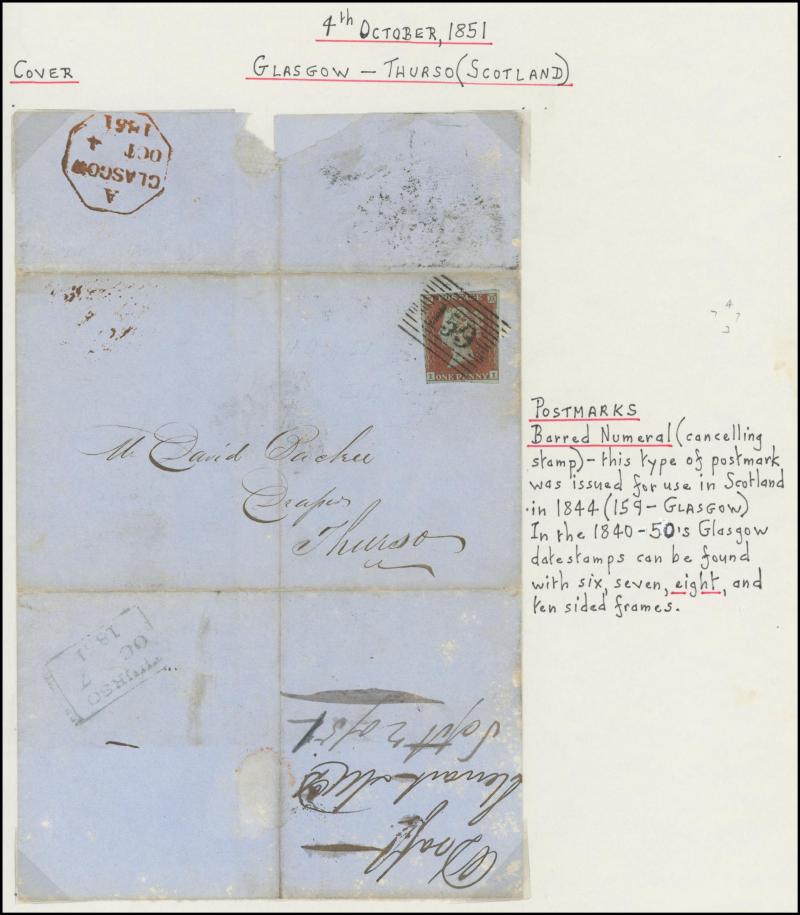 4th OCTOBER, 1851
COVER
GLASGOW – THURSO (SCOTLAND)
A
GLASGOW
OCT 4
1851
POSTAGE
159
I I
ONE PENNY
Mr David
Draper
Thurso
POSTMARKS
Barred Numeral (cancelling
stamp) – this type of postmark
was issued for use in Scotland
in 1844 (159 – GLASGOW)
In the 1840-50's Glasgow
datestamps can be found
with six, seven, eight, and
ten sided frames.
THURSO
7
OC
1851
Draft
Sept